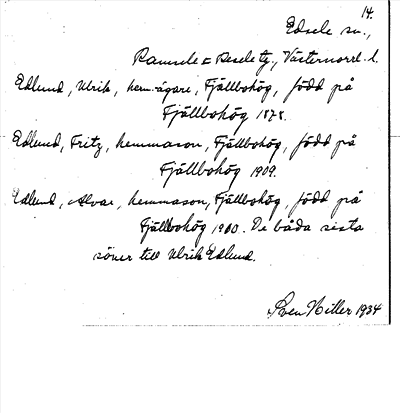 14.
Edsele sn.,
Ramsele o Resele tg., Västernorrl. l.
Edlund, Ulrik, hem.ägare, Fjällbohög, född på
Fjällbohög 1878.
Edlund, Fritz, hemmason, Fjällbohög, född på
Fjällbohög 1909.
Edlund, Alvar, hemmason, Fjällbohög, född på
Fjällbohög 1900. De båda sista
söner till Ulrik Edlund.
Sven Hiller 1934